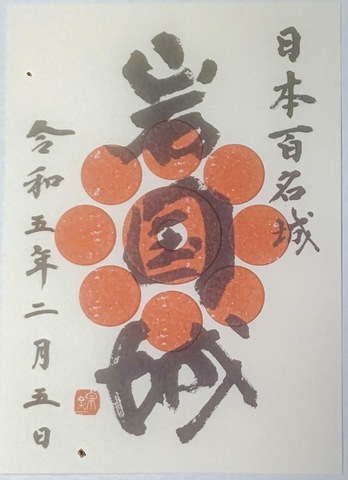 日本百名城
岩国城
令和五年二月五日